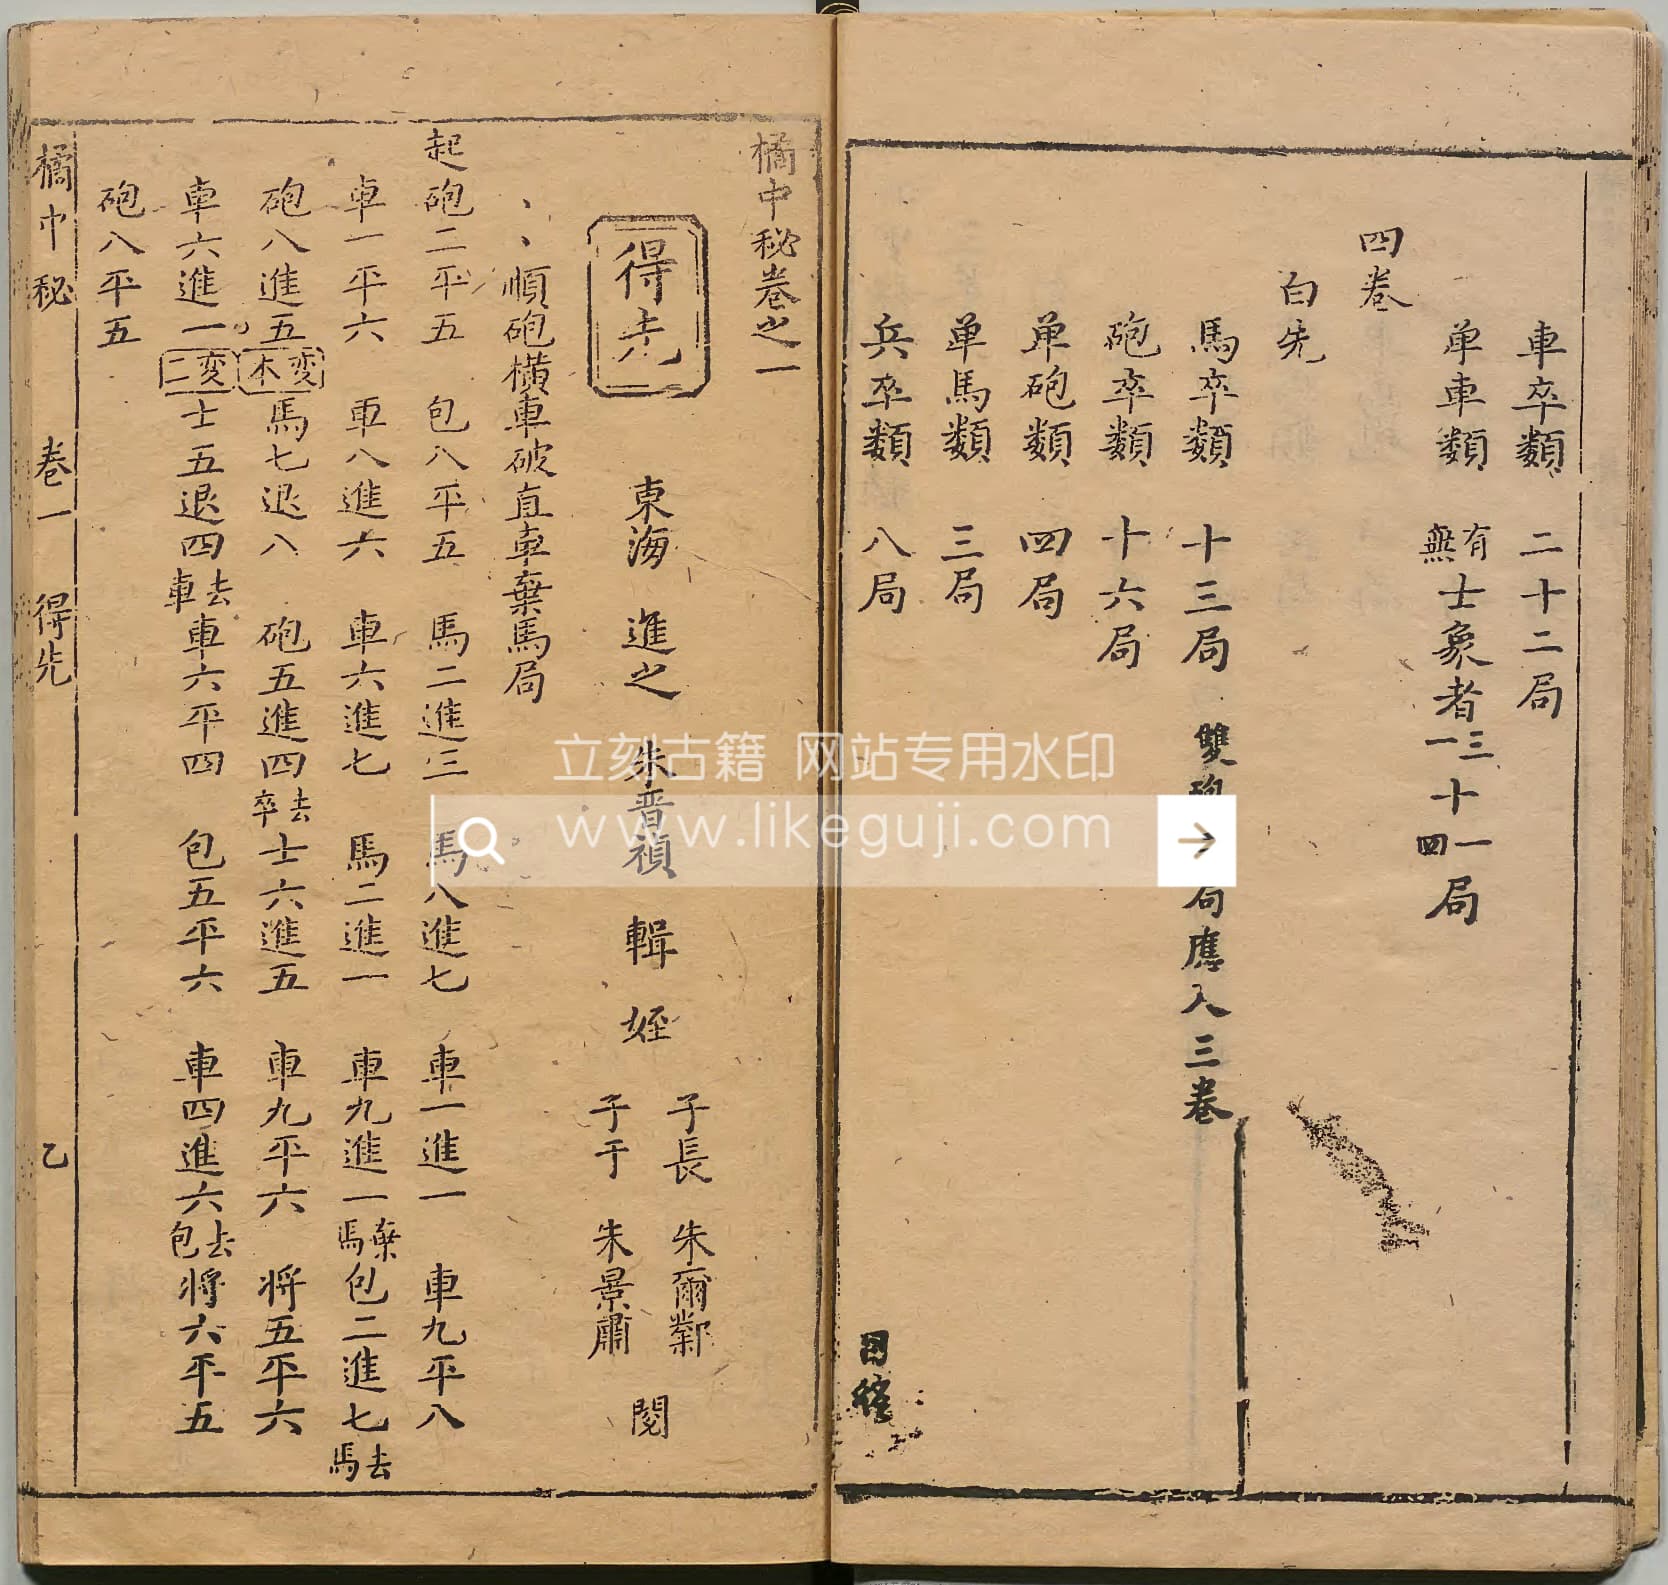 車卒類 二十二局
单車類 有無士象者三一十一四局
四卷
白先
馬卒類 十三局 雙砲 局應入三卷
砲卒類 十六局
单砲類 四局
单馬類 三局
兵卒類 八局
目終
橘中秘卷之一
得先
東海 進之 朱晋禎 輯 姪 子長 朱爾鄴 子于 朱景肅 閱
、、順砲橫車破直車棄馬局
起砲二平五 包八平五 馬二進三 馬八進七 車一進一 車九平八
車一平六 車八進六 車六進七 馬二進一 車九進一棄馬 包二進七去馬
砲八進五 本变 馬七退八 砲五進四去卒 士六進五 車九平六 将五平六
車六進一 二变 士五退四去車 車六平四 包五平六 車四進六去包 将六平五
砲八平五
橘中秘 卷一 得先 乙
立刻古籍 网站专用水印
www.likeguji.com